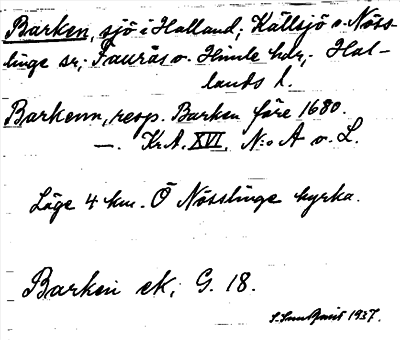 Barken, sjö i Halland; Källsjö o. Nöss-
linge sr; Faurås o. Himle hdr, Hal-
lands l.
Barkenn, resp. Barken före 1680.
—. Kr.A. XVI, N:o A o. L.
Läge 4 km. Ö Nösslinge kyrka.
Barken ek; G. 18.
1937.